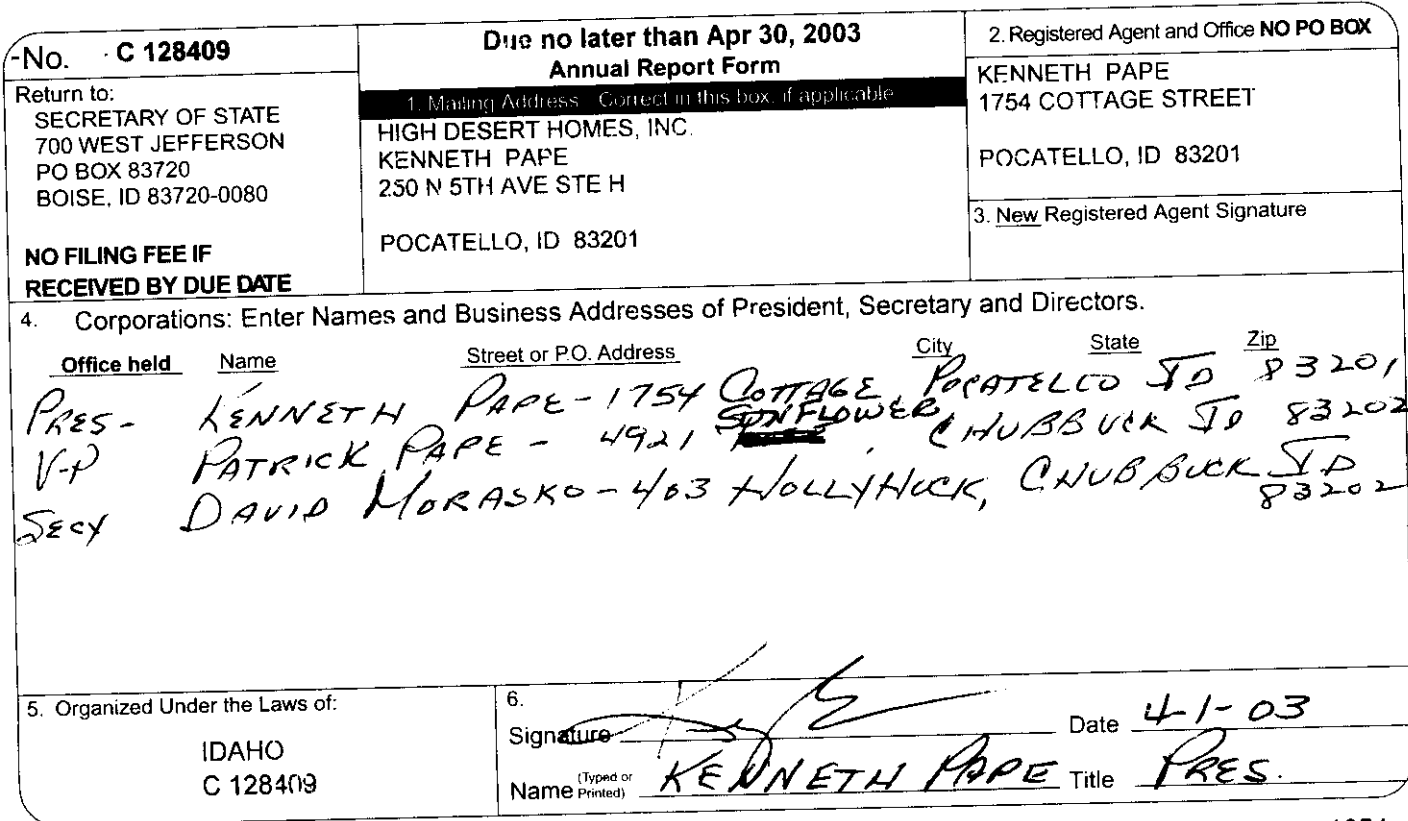 No. C 128409
Return to:
SECRETARY OF STATE
700 WEST JEFFERSON
PO BOX 83720
BOISE, ID 83720-0080
NO FILING FEE IF
RECEIVED BY DUE DATE
Due no later than Apr 30, 2003
Annual Report Form
1. Mailing Address Correct in this box, if applicable
HIGH DESERT HOMES, INC.
KENNETH PAPE
250 N 5TH AVE STE H
POCATELLO, ID 83201
2. Registered Agent and Office NO PO BOX
KENNETH PAPE
1754 COTTAGE STREET
POCATELLO, ID 83201
3. New Registered Agent Signature
4. Corporations: Enter Names and Business Addresses of President, Secretary and Directors.
Office held Name Street or P.O. Address City State Zip
PRES- KENNETH PAPE - 1754 COTTAGE POCATELLO ID 83201
V-P PATRICK PAPE - 4921 SUNFLOWER, CHUBBUCK ID 83202
SECY DAVID MORASKO - 403 HOLLYHOCK, CHUBBUCK ID
83202
5. Organized Under the Laws of:
IDAHO
C 128409
6.
Signature Date 4-1-03
Name (Typed or Printed) KENNETH PAPE Title PRES.